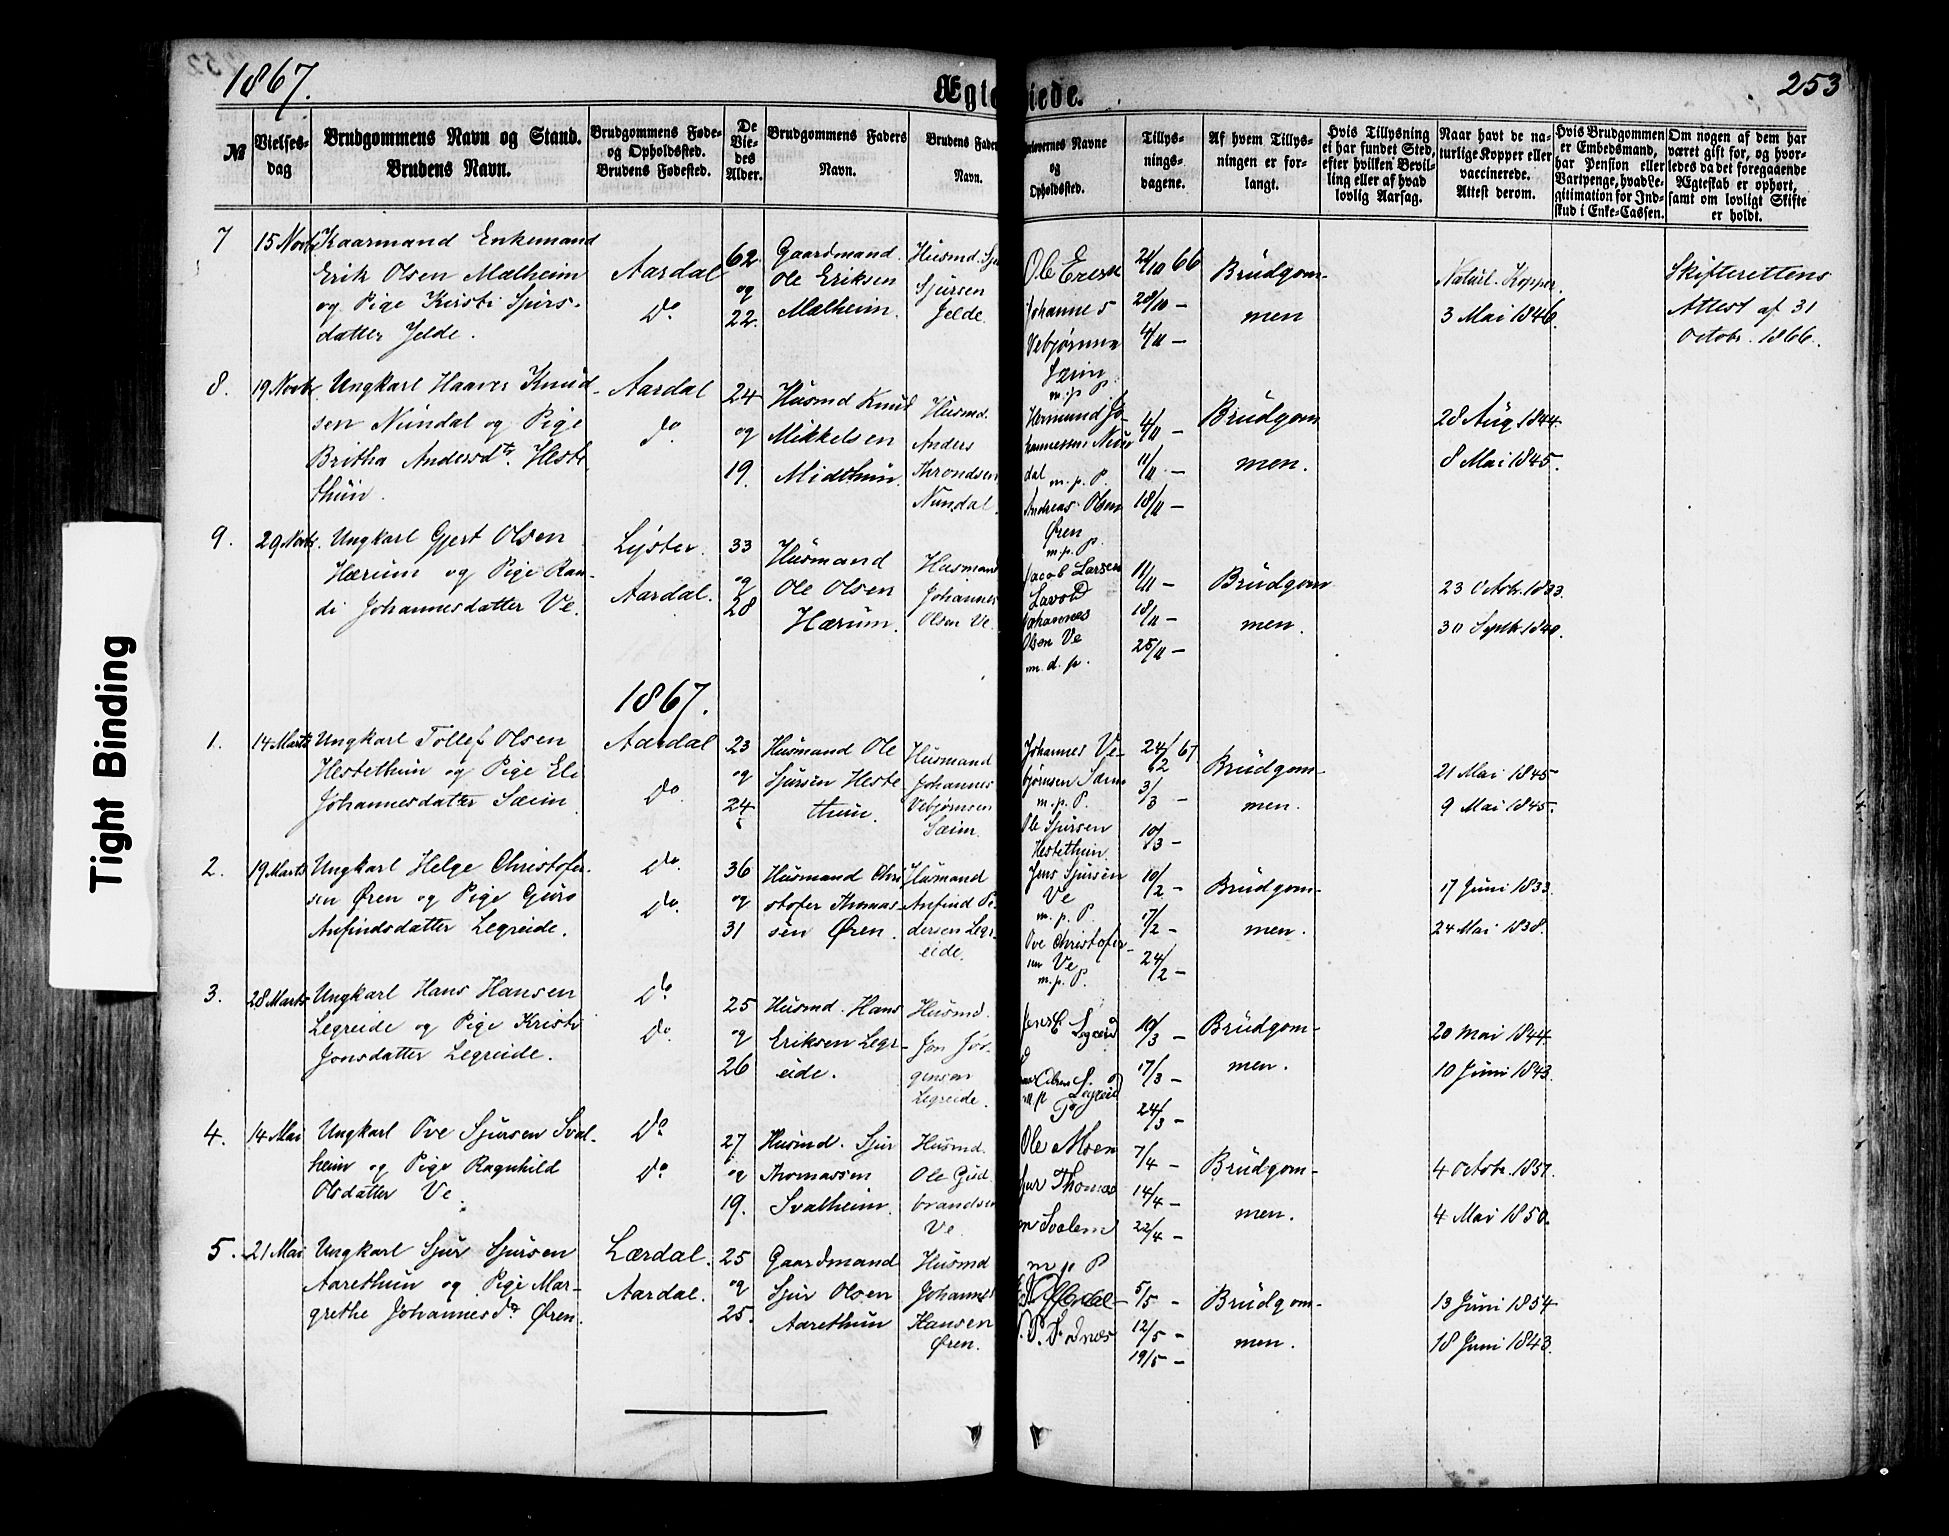 1867.
Ægte
iede.
253
Tight Binding
№
Vielses-
dag
Brudgommens Navn og Stand.
Brudens Navn.
Brudgommens Føde-
og Opholdssted.
Brudens Fødested.
De
Vie-
des
Alder.
Brudgommens Faders
Navn.
Brudens Fader
Navn.
Forlovernes Navne
og
Opholdsted.
Tillys-
nings-
dagene.
Af hvem Tillys-
ningen er for-
langt.
Hvis Tillysning
ei har fundet Sted,
efter hvilken Bevil-
ling eller af hvad
lovlig Aarsag.
Naar havt de na-
turlige Kopper eller
vaccinerede.
Attest derom.
Hvis Brudgommen
er Embedsmand,
har Pension eller
Vartpenge, hvad Le-
gitimation for Ind-
skud i Enke-Cassen.
Om nogen af dem har
været gift før, og hvor-
ledes da det foregaaende
Ægteskab er ophørt,
samt om lovligt Skifte
er holdt.
7 15 Novb Kaarmand Enkemand
Erik Olsen Malheim
og Pige Kirsti Sjurs-
datter Jelde.
Aardal
Do
62.
og
22.
Gaardmand.
Ole Eriksen
Malheim.
Husmd. Sju
Sjursen
Jelde.
Johannes
Vebjørnsen
m. p. P.
66
28/10 —
4/11 —
Brudgom-
men
Naturl. Kopper.
3 Mai 1846.
Skifterettens
Attest af 31
Octobr. 1866.
8. 19 Novbr Ungkarl Haaver Knud
sen Nundal og Pige
Britha Andersdtr. Heste
thun.
Aardal
do.
24
og
19.
Husmd Knud
Mikkelsen
Midthun.
Husmd.
Anders
Throndsen
Nundal.
Hermund Jo-
hannessen Nun
dal m. p. P.
Andreas Olsen
Øren
m. p. P.
4/11 —
11/11 —
18/11 —
Brudgom
men.
28 Aug 1844
8 Mai 1845.
9. 29 Novbr. Ungkarl Gjert Olsen
Hærum og Pige Ran-
di Johannesdatter Ve.
Lyster.
Aardal.
33
og
28
Husmand
Ole Olsen
Hærum.
Husmand
Johannes
Olsen Ve.
Jacob Larsen
Lavold
Johannes
Olsen Ve
m. d. p.
11/11 —
18/11 —
25/11 —
Brudgom
men.
23 Octobr. 1833.
30 Septbr 1840.
1867.
1. 14 Marts Ungkarl Tollef Olsen
Hestethun og Pige Eli
Johannesdatter Sæim.
Aardal
Do.
23
og
24
Husmand Ole
Sjursen Heste
thun.
Husmand
Johannes
Vebjørnsen
Sæim.
Johannes Ve-
bjørnsen Sæim
m. p. P.
Ole Sjursen
Hestethun
24/2 67
3/3 —
10/3 —
Brudgom-
men.
21 Mai 1845
9 Mai 1845.
2. 19 Marts Ungkarl Helge Christofer-
sen Øren og Pige Guro
Anfindsdatter Legreide.
Do.
Do.
36
og
31
Husmand Chri
stofer Thomas-
sen Øren.
Husmand
Anfind Pe-
dersen Legr-
eide.
Jens Sjursen
Ve
m. p. P.
Ove Christofer-
sen Ve
m. p. P.
10/2 —
17/2 —
24/2 —
Brudgom-
men.
17 Juni 1833.
24 Mai 1838.
3. 28 Marts Ungkarl Hans Hansen
Legreide og Pige Kristi
Jonsdatter Legreide.
Do
Do.
25
og
26
Husmd. Hans
Eriksen Legr-
eide.
Husmd.
Jon Jør-
gensen
Legreide.
10/3 —
17/3 —
24/3 —
Brudgom-
men.
20 Mai 1844
10 Juni 1843.
4. 14 Mai Ungkarl Ove Sjursen Sval-
heim og Pige Ragnhild
Olsdatter Ve.
Do
Do.
27
og
19.
Husmd. Sjur
Thomassen
Svalheim.
Husmd.
Ole Gud
brandsen
Ve
Ole Moen
Sjur Thomas
en Svalem
m p P
7/4 —
14/4 —
22/4 —
Brudgom-
men.
4 Octobr. 1851.
4 Mai 1850.
5. 21 Mai Ungkarl Sjur Sjursen
Aarethun og Pige Mar-
grethe Johannesdr Øren.
Lærdal.
Aardal.
25
og
25.
Gaardmand
Sjur Olsen
Aarethun
Husmd
Johannes
Hansen
Øren.
5/5 —
12/5 —
19/5 —
Brudgom-
men.
13 Juni 1854
18 Juni 1843.